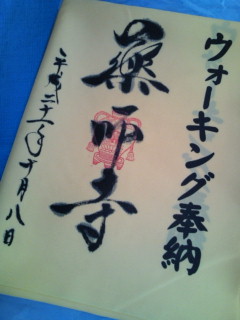 ウォーキング奉納
薬師寺
平成二十二年十月八日